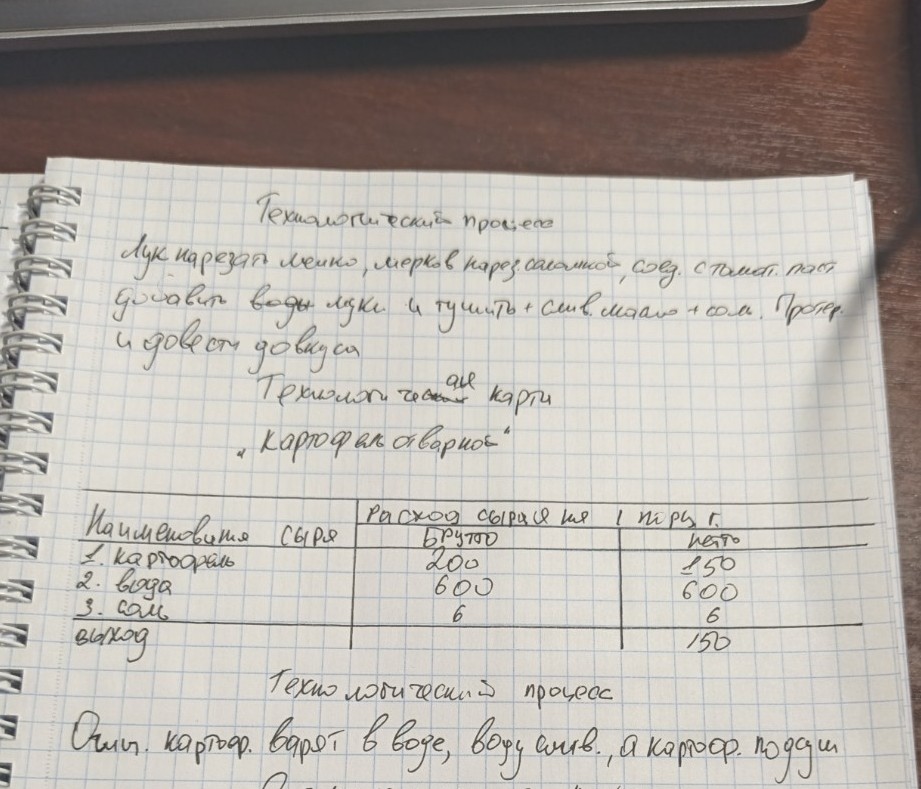 Технологический процесс
Лук нарезать мелко, морков нарез. соломкой, соед. с томат. паст
добавить воды луки и тушить + слив. масло + соль. Протер.
и довести до вкуса
Технологическая карта
„Картофель отварной"
Наименования сырья Расход сырья на 1 порц г.
Брутто нетто
1. картофель 200 150
2. вода 600 600
3. соль 6 6
выход 150
Технологический процесс
Очищ. картоф. варят в воде, воду слив., а картоф. подсуш